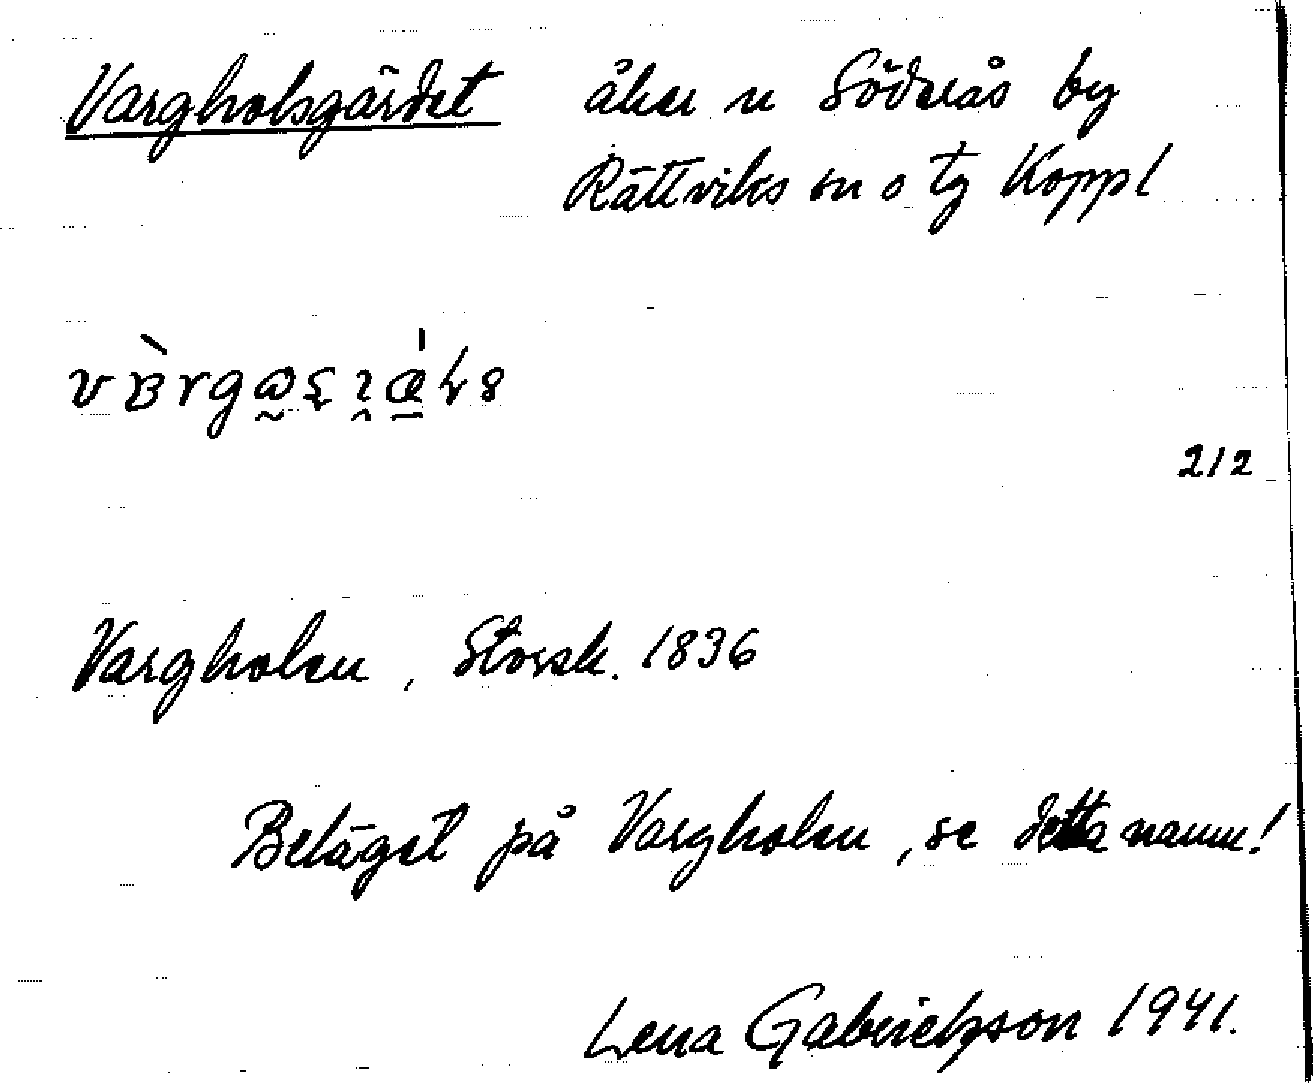 Vargholsgärdet åker n Söderås by
Rättviks sn o tg Koppl
212
Vargholen, Storsk. 1836
Beläget på Vargholen, se detta namn!
Lena Gabrielsson 1941.